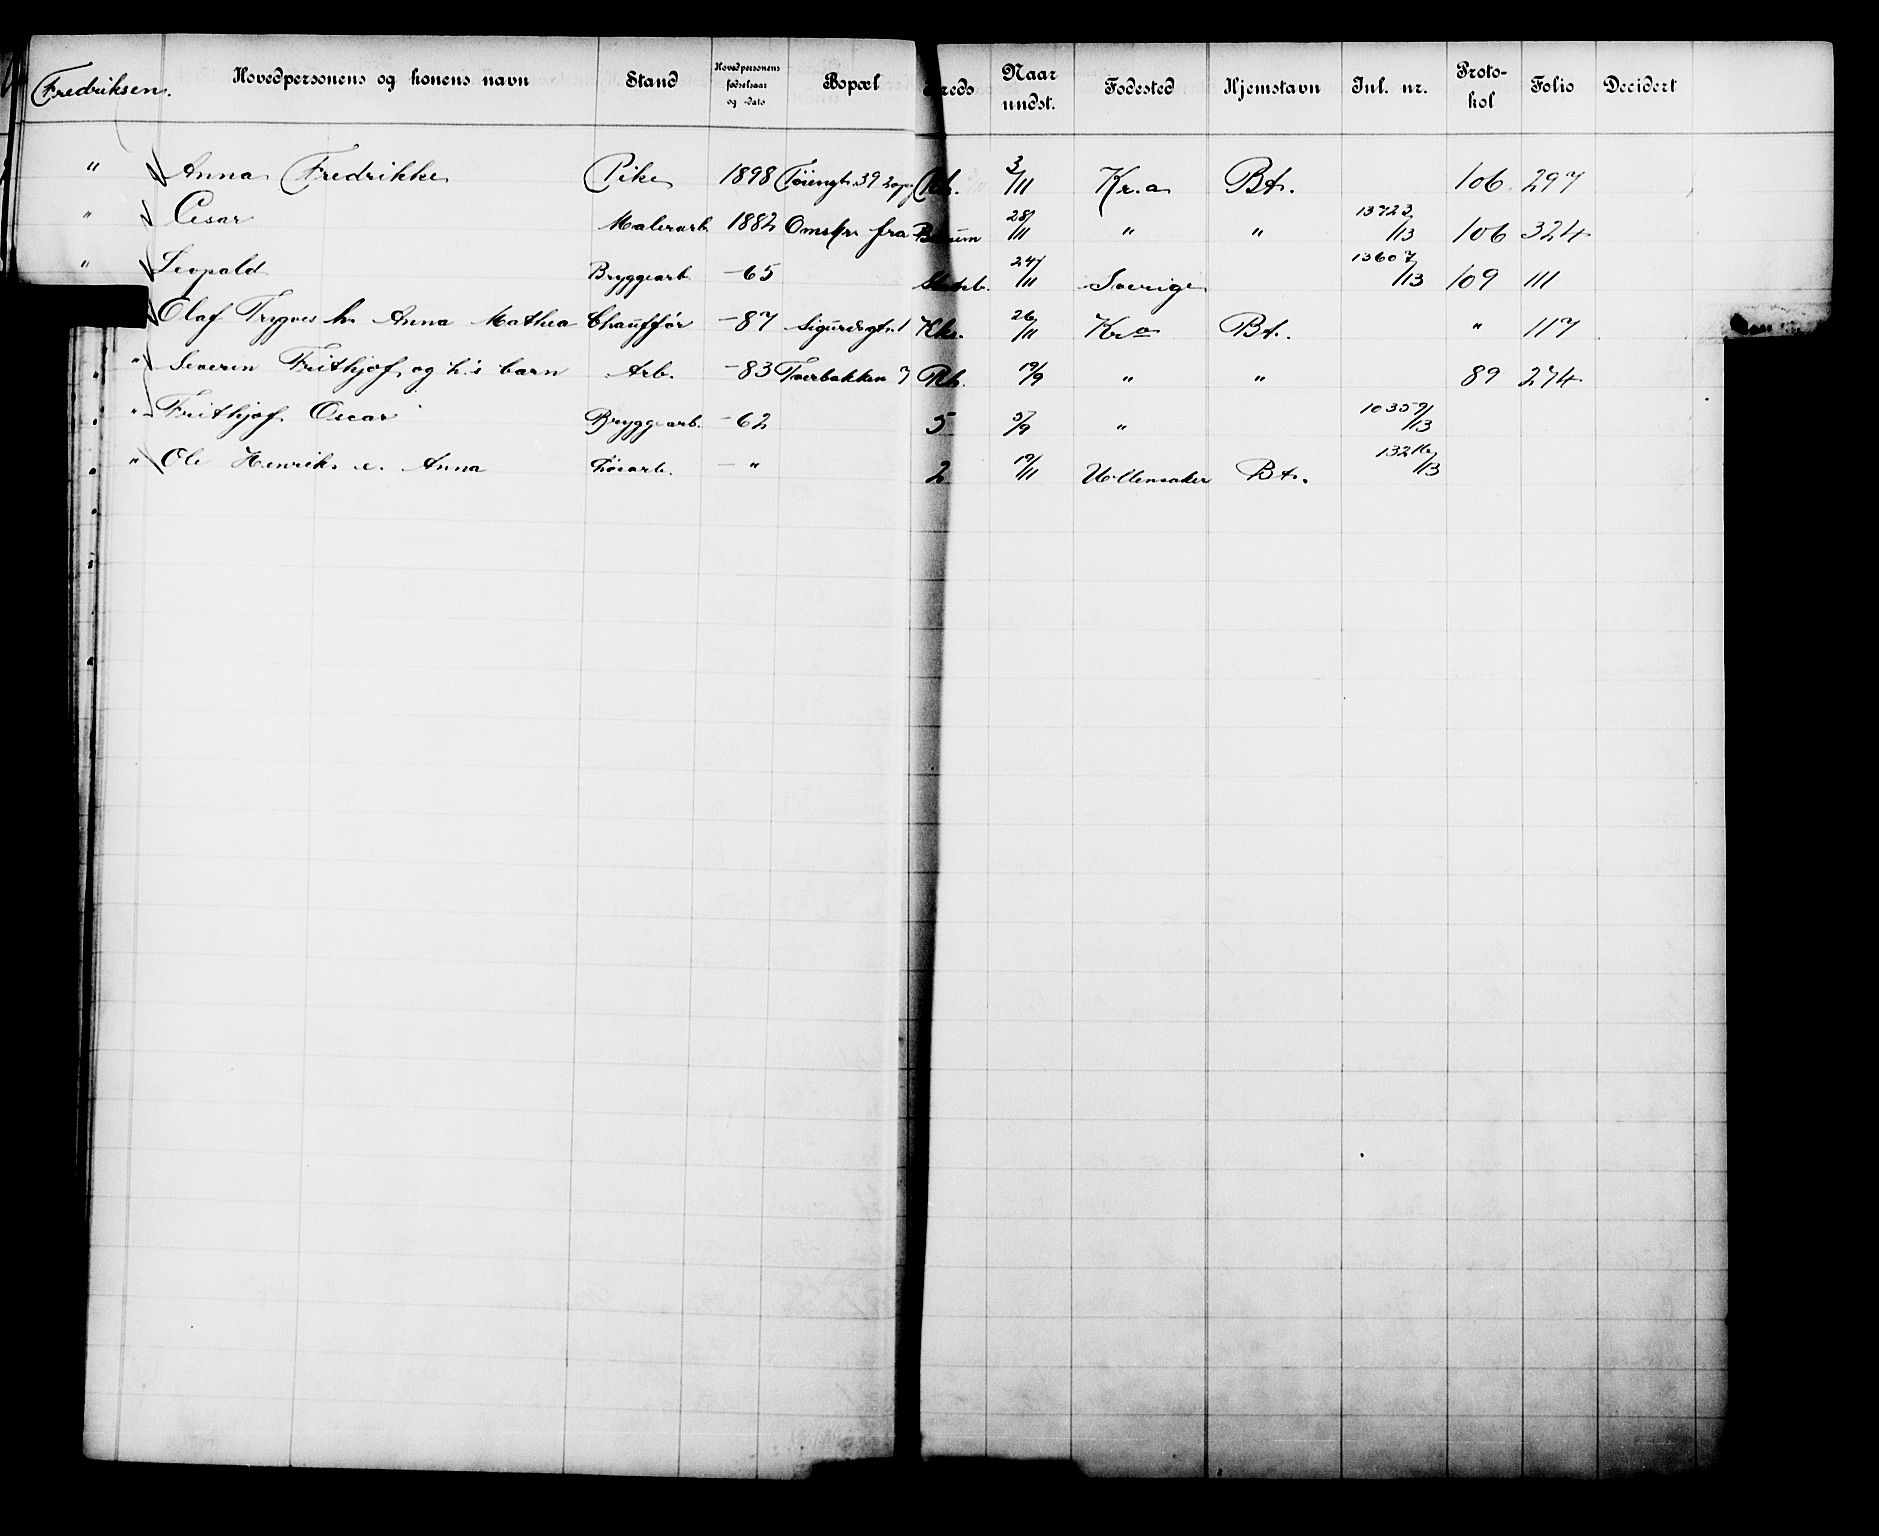 Fredriksen. Hovedpersonens og konens navn Stand Hovedpersonens fødselsaar og -dato Bopæl Kreds Naar undst. Fødested Hjemstavn Jnl. nr. Protokol Folio Decidert
" Anna Fredrikke Pike 1898 Tøiengt. 39 3/11 Kr.a Bt. 106 297
" Cesar Malerarb. 1882 fra Bærum 28/11 " " 13723/13 106 324
" Leopold Bryggearb. -65 24/11 Sverige 13607/13 109 111
Olaf Trygves h. Anna Mathea Chauffør -87 Sigurdsgt. 1 Kk. 26/11 Kr.a Bt. " 117
" Severin Frithjof og h.s barn Arb. -83 Tverbakken 7 Rk. 19/9 " " 89 274
" Frithjof Oscar Bryggearb. -62 5 5/9 " 10359/13
" Ole Henrik e. Anna -" 2 19/11 Ullensaker Bt. 13216/13